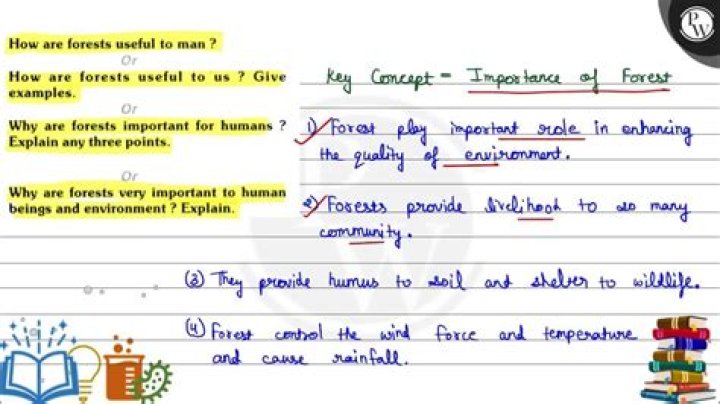 How are forests useful to man ?
Or
How are forests useful to us ? Give
examples.
Or
Why are forests important for humans ?
Explain any three points.
Or
Why are forests very important to human
beings and environment ? Explain.
Key Concept = Importance of Forest
1) Forest play important role in enhancing
the quality of environment.
2) Forests provide livelihood to so many
community.
(3) They provide humus to soil and shelter to wildlife.
(4) Forest control the wind force and temperature
and cause rainfall.
P
W